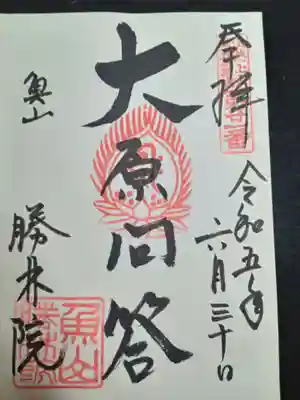 奉拝
令和五年
六月三十日
大原問答
魚山
勝林院
魚山
勝林院